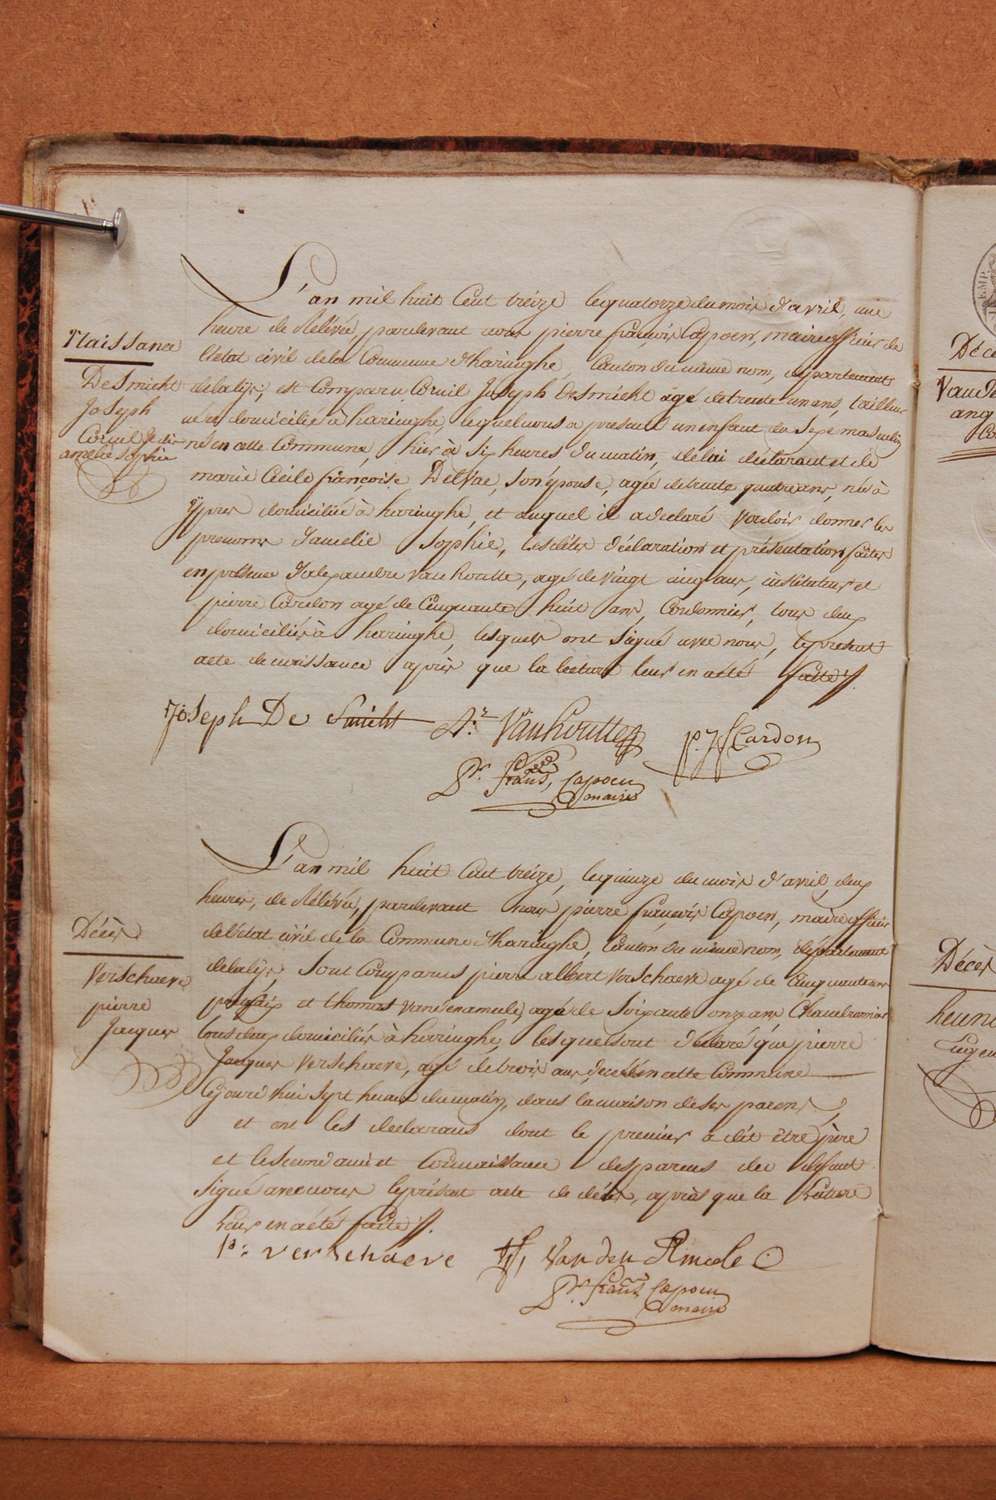 Naissance
De Smicht
Joseph
L'an mil huit Cent tréize lequatorze du mois d'avril, une
heure de Rélévée pardevant nous pierre françois Capoen, maire officier de
L'état civil de la Commune d'haringhe, Canton du même nom, département
delalijs, est Comparu Joseph De Smicht agé detrente un ans, tailleur
domicilié à haringhe lequel nous a présenté un enfant du Sexe masculin
né en cette Commune, hier à Six heures du matin, de lui déclarant et de
marie Cécile françoise Delvae, Son épouse, agée detrente quatre ans, née à
ÿpres domiciliée à haringhe, et auquel il a déclaré vouloir donner les
prenoms Sophie, lesdites déclaration et présentation faites
en présence d'alexandre Vanhoutte, agé de vingt cinq ans, instituteur et
pierre Cardon agé de Cinquante huit ans, Cordonnier, tous deux
domiciliés à haringhe, lesquels ont Signé avec nous, leprésent
acte de naissance après que la lecture leur en a été faite
Joseph De Smicht Vanhoutte Cardon
Pr. frans, Capoen
maire
Décès
Verschaeve
pierre
Jacques
L'an mil huit Cent tréize, lequinze du mois d'avril, deux
heures, de Rélévée, pardevant nous pierre françois Capoen, maire officier
de L'état civil de la Commune d'haringhe, Canton du même nom, département
delalijs, Sont Comparus pierre albert Verschaeve agé de Cinquante un
et thomas Vandenameele, agé de Soixante onze ans Chaudronnier
tous deux domiciliés à haringhe, lesquels ont déclaré que pierre
Jacques Verschaeve, agé de trois ans, décédé en cette Commune
cejourd'hui Sept heures du matin, dans la maison de Ses parens,
et ont les déclarans dont le premier a dit être père
et le Second ami et Connaissance des parens du défunt
Signé avec nous leprésent acte de décès, après que la lecture
Leur en a été faite
Pr. Verschaeve Van den Amele
Pr. frans, Capoen
maire
Décès
Décès